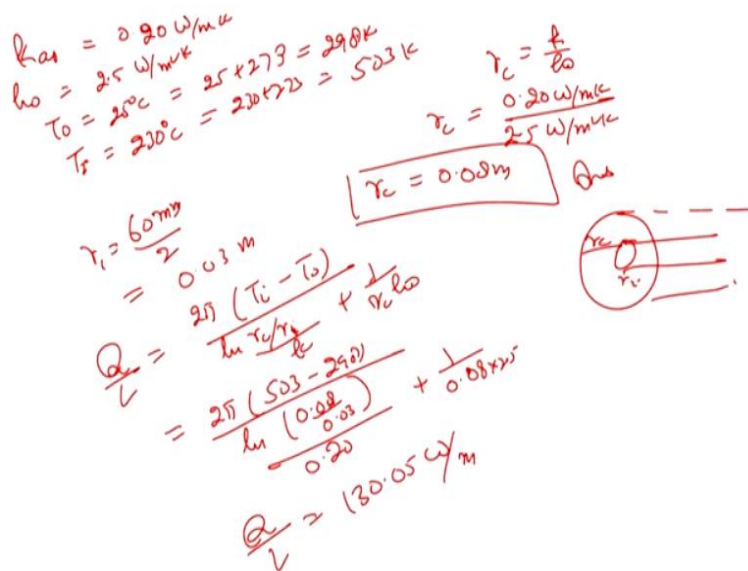 kas = 0.20 W/mK
ho = 2.5 W/m²K
To = 25°C = 25+273 = 298K
Ts = 230°C = 230+273 = 503K
rc = k/ho
rc = 0.20 W/mK / 2.5 W/m²K
rc = 0.08m Ans
r1 = 60mm/2
= 0.03 m
Q/L = 2π (Ti - To) / ln rc/r1 / k + 1/rc ho
= 2π (503 - 298) / ln (0.08/0.03) / 0.20 + 1/0.08×2.5
Q/L = 130.05 W/m
rc
ri